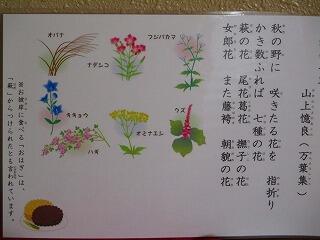 山上憶良（万葉集）
秋の野に　咲きたる花を　指折り
かき数ふれば　七種の花
萩の花　尾花葛花　撫子の花
女郎花　また藤袴　朝貌の花
オバナ
ナデシコ
フジバカマ
キキョウ
クズ
オミナエシ
ハギ
※お彼岸に食べる「おはぎ」は、
「萩」からつけられたとも言われています。